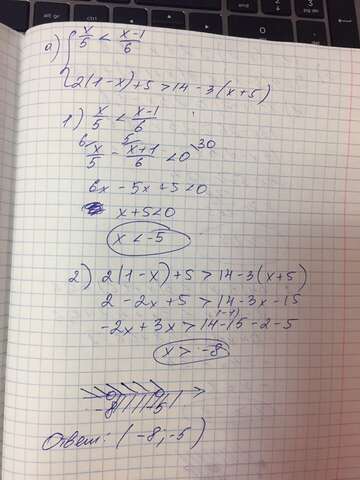 а) { x/5 < (x-1)/6
2(1-x)+5 > 14-3(x+5)
1) x/5 < (x-1)/6
6\ x/5 - 5\ (x+1)/6 < 0 \30
6x - 5x + 5 < 0
x + 5 < 0
x < -5
2) 2(1-x)+5 > 14-3(x+5)
2 - 2x + 5 > 14 - 3x - 15
-2x + 3x > 14 - 15 - 2 - 5
(-1)
x > -8
-8 -5
Ответ: (-8; -5)